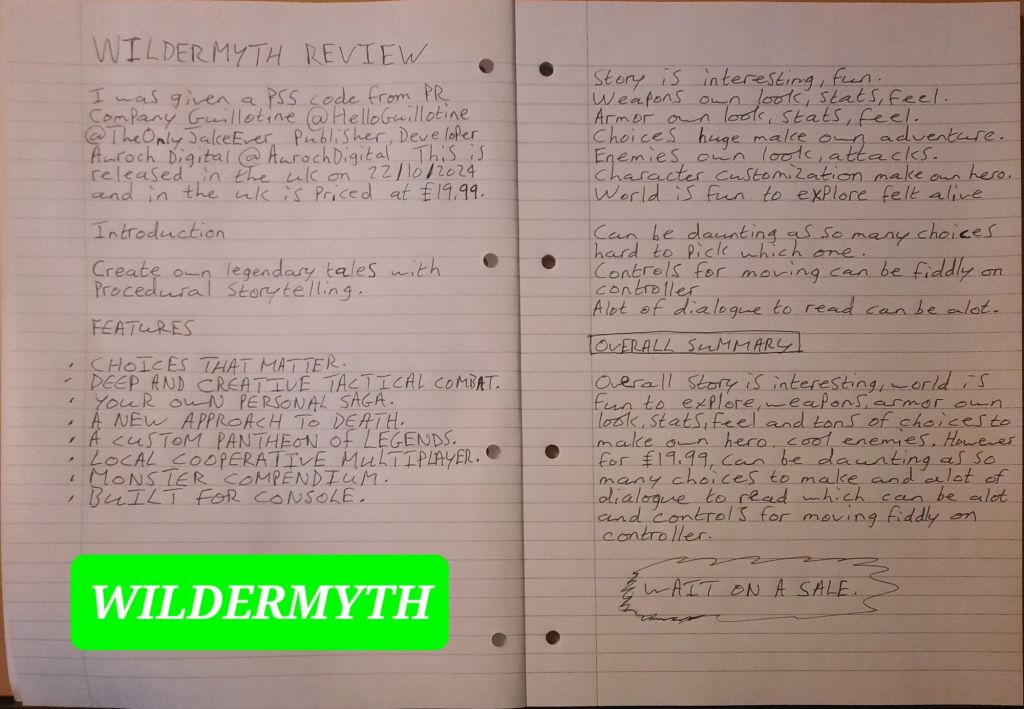 WILDERMYTH REVIEW
I was given a PS5 code from PR
Company Guillotine @HelloGuillotine
@TheOnlyJakeEver Publisher, Developer
Auroch Digital @AurochDigital This is
released in the uk on 22/10/2024
and in the uk is Priced at £19.99.
Introduction
Create own legendary tales with
Procedural Storytelling.
FEATURES
• CHOICES THAT MATTER.
• DEEP AND CREATIVE TACTICAL COMBAT.
• YOUR OWN PERSONAL SAGA.
• A NEW APPROACH TO DEATH.
• A CUSTOM PANTHEON of LEGENDS.
• LOCAL COOPERATIVE MULTIPLAYER.
• MONSTER COMPENDIUM.
• BUILT FOR CONSOLE.
WILDERMYTH
Story is interesting, fun.
Weapons own look, stats, feel.
Armor own look, stats, feel.
Choices huge make own adventure.
Enemies own look, attacks.
Character customization make own hero.
World is fun to explore felt alive
Can be daunting as so many choices
hard to pick which one.
Controls for moving can be fiddly on
controller
Alot of dialogue to read can be alot.
OVERALL SUMMARY
Overall story is interesting, world is
fun to explore, weapons, armor own
look, stats, feel and tons of choices to
make own hero, cool enemies. However
for £19.99, can be daunting as so
many choices to make and alot of
dialogue to read which can be alot
and controls for moving fiddly on
controller.
WAIT ON A SALE.